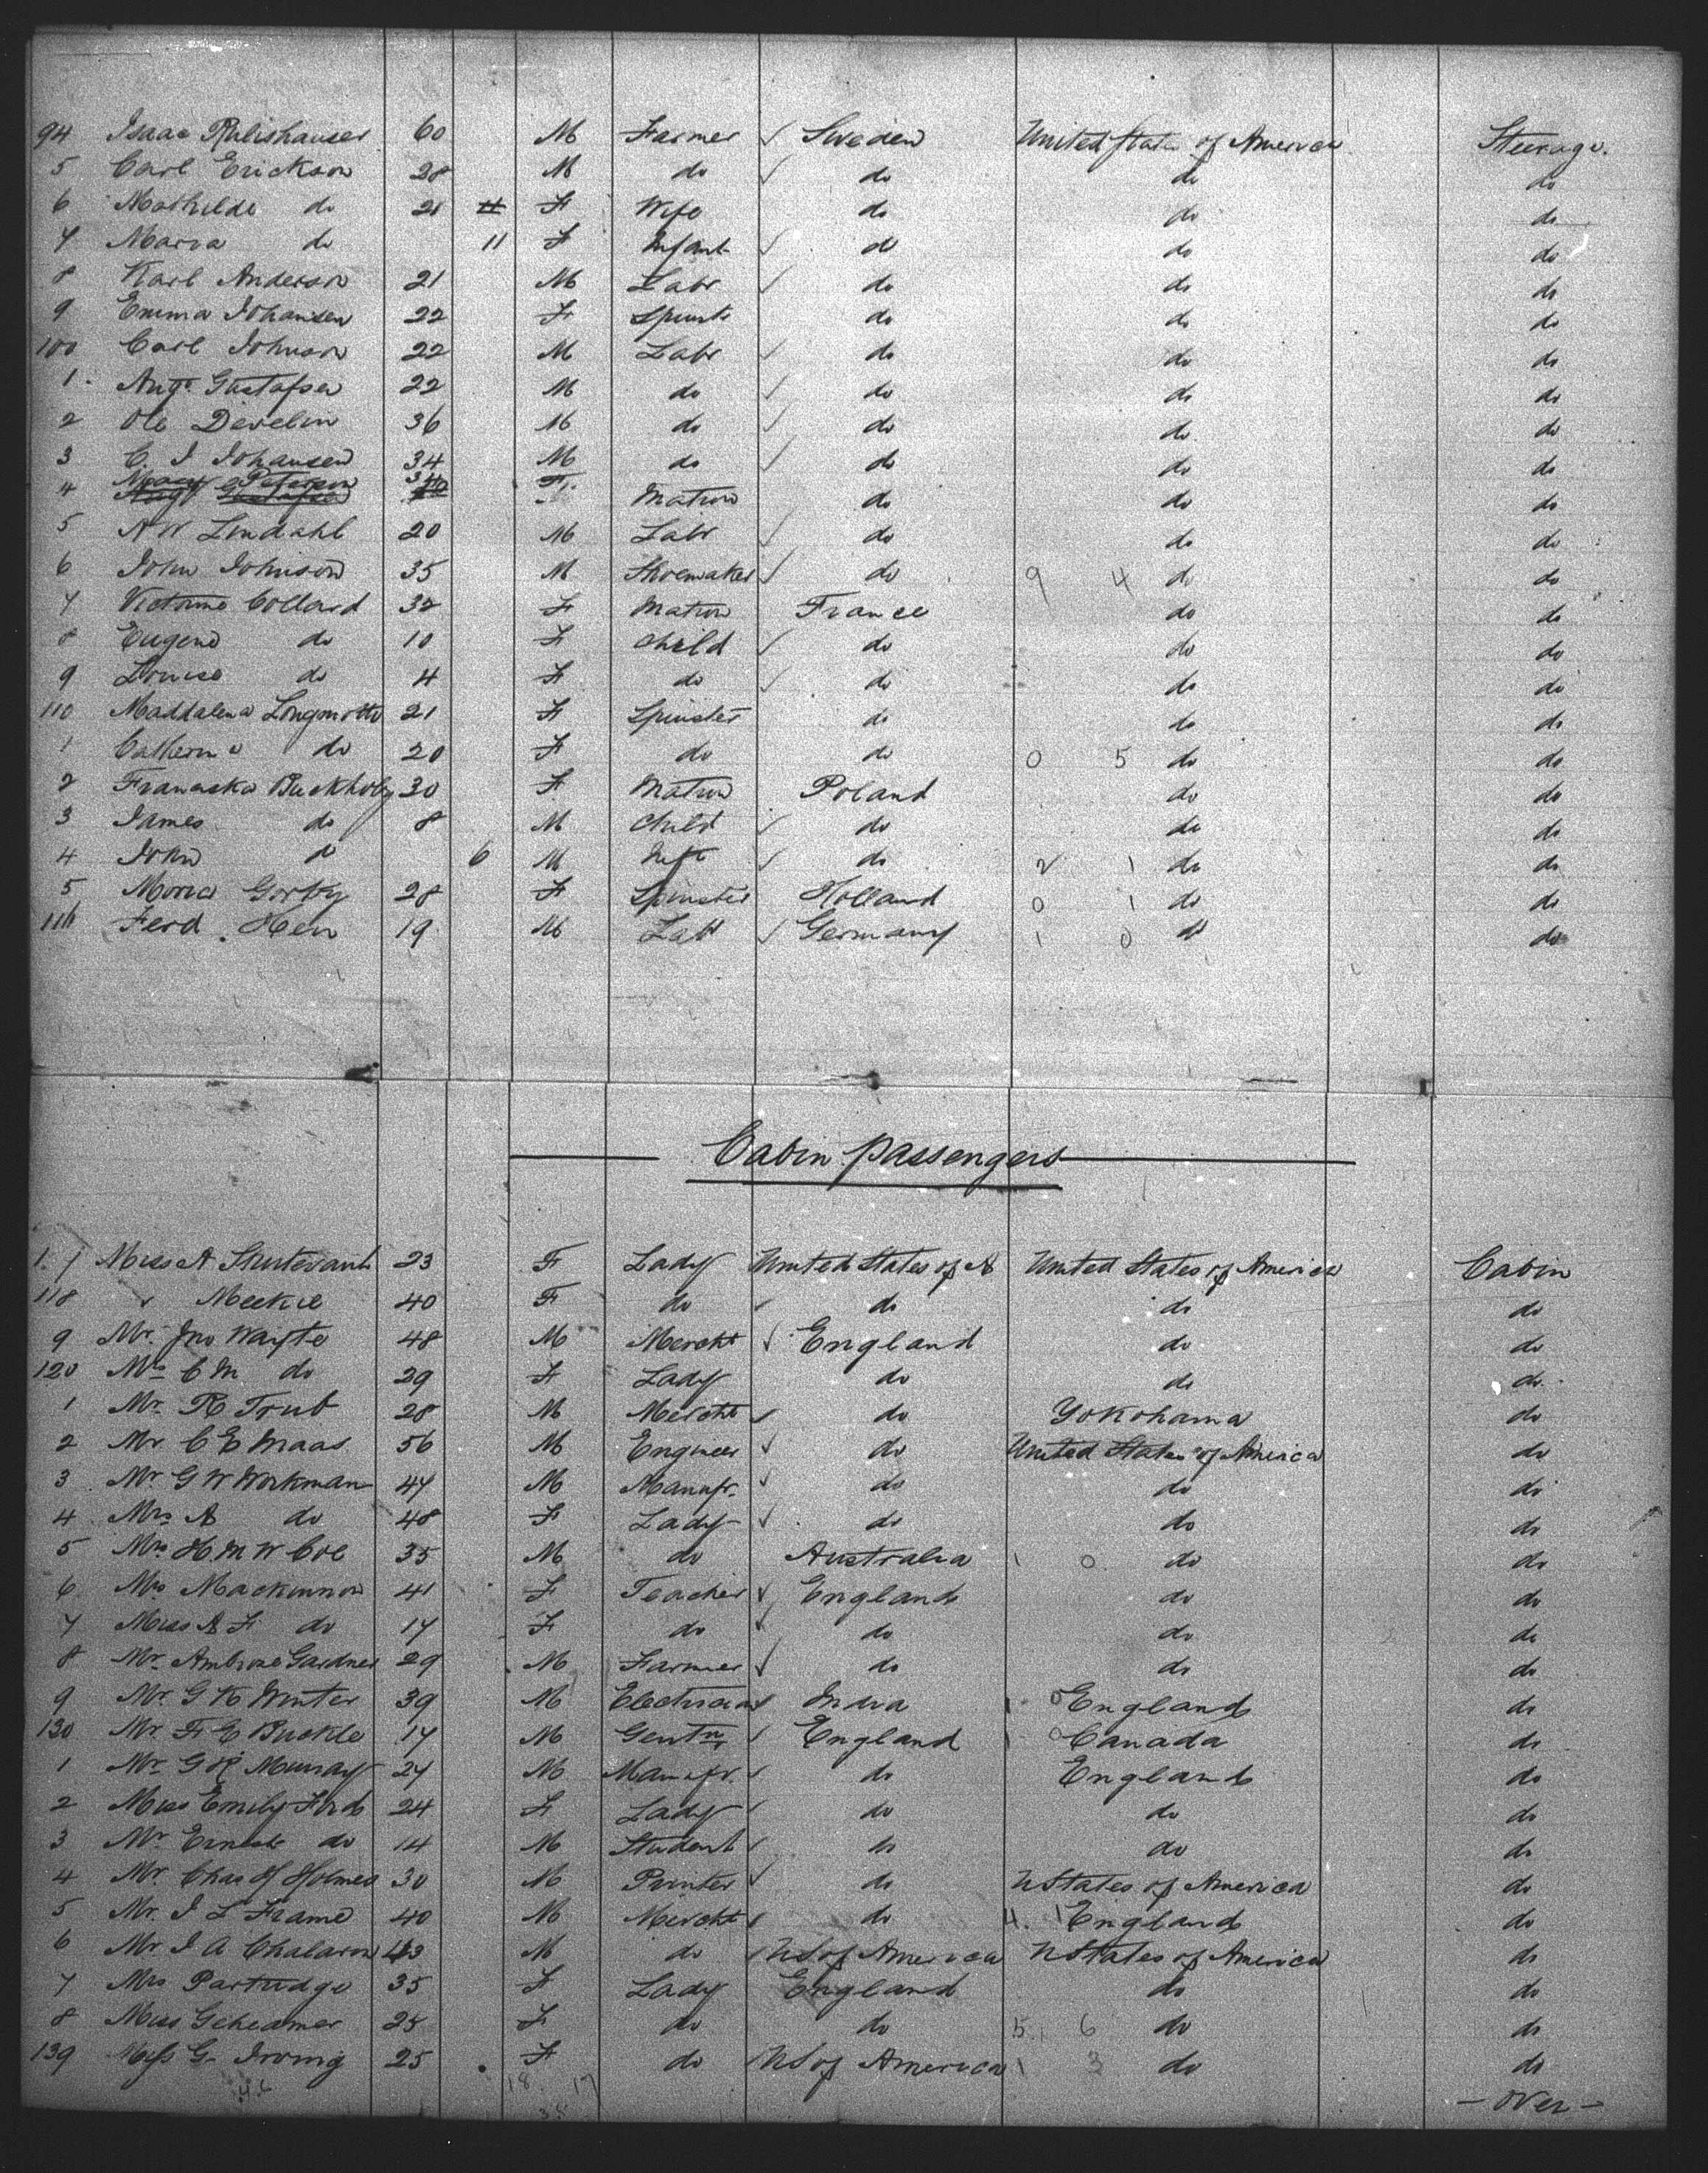 94 Isaac Rulishauser 60 M Farmer ✓ Sweden United States of America Steerage.
5 Carl Erickson 28 M do ✓ do do do
6 Mathilde do 21 F Wife do do do
7 Maria do 11 F Infant ✓ do do do
8 Karl Anderson 21 M Labr ✓ do do do
9 Emma Johansen 22 F Spinstr do do do
100 Carl Johnson 22 M Labr ✓ do do do
1 Augt Gustafsen 22 M do ✓ do do do
2 Ole Develin 36 M do ✓ do do do
3 C. J Johansen 34 M do ✓ do do do
4 Peterson 34 F. Matron do do do
5 A W Lindahl 20 M Labr ✓ do do do
6 John Johnson 35 M Shoemaker ✓ do 9 4 do do
7 Victorine Collard 32 F Matron France do do
8 Eugene do 10 F Child ✓ do do do
9 Louise do 4 F do ✓ do do do
110 Maddalena 21 F Spinster do do do
1 Catherine do 20 F do do 0 5 do do
2 Franciska Buckholz 30 F Matron Poland do do
3 James do 8 M Child ✓ do do do
4 John do 6 M Inft ✓ do 2 1 do do
5 Maria 28 F Spinster Holland 0 1 do do
116 Ferd. Hen 19 M Labr ✓ Germany 1 0 do do
Cabin passengers
1.7 Miss A Sturtevant 23 F Lady United States of A United States of America Cabin
118 " Meekie 40 F do ✓ do do do
9 Mr. Jno Wayte 48 M Mercht ✓ England do do
120 Mrs C M do 29 F Lady do do do
1 Mr. R Trub 28 M Mercht ✓ do Yokohama do
2 Mr C E Maas 56 M Engineer ✓ do United States of America do
3 Mr G W Workman 47 M Manufr. ✓ do do do
4 Mrs A do 48 F Lady ✓ do do do
5 Mrs H M W Coe 35 M do Australia 1 0 do do
6 Mrs Mackinnon 41 F Teacher ✓ England do do
7 Miss A F do 17 F do ✓ do do do
8 Mr. Ambrose Gardner 29 M Farmer ✓ do do do
9 Mr. G K Winter 39 M Electrician ✓ India 1 0 England do
130 Mr. F E Buckle 17 M Gentn ✓ England 1 0 Canada do
1 Mr. G R Murray 27 M Manufr. ✓ do England do
2 Miss Emily Ford 24 F Lady ✓ do do do
3 Mr Ernest do 14 M Student ✓ do do do
4 Mr. Chas H Holmes 30 M Printer ✓ do U States of America do
5 Mr. J L Frame 40 M Mercht ✓ do 4. 1 England do
6 Mr J A Chalaron 43 M do ✓ U S of America U States of America do
7 Mrs Partridge 35 F Lady England do do
8 Miss 25 F do do 5 6 do do
139 Miss G. Irving 25 F do U S of America 1 3 do do
18 17
— Over —